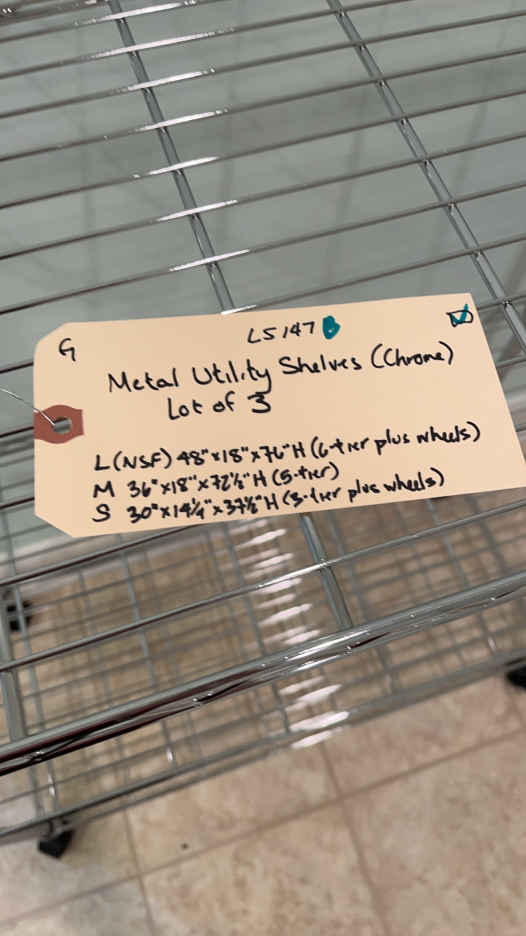 G
LS147
Metal Utility Shelves (Chrome)
Lot of 3
L (NSF) 48"x18"x76"H (6-tier plus wheels)
M 36"x18"x72½"H (5-tier)
S 30"x14¼"x37½"H (3-tier plus wheels)